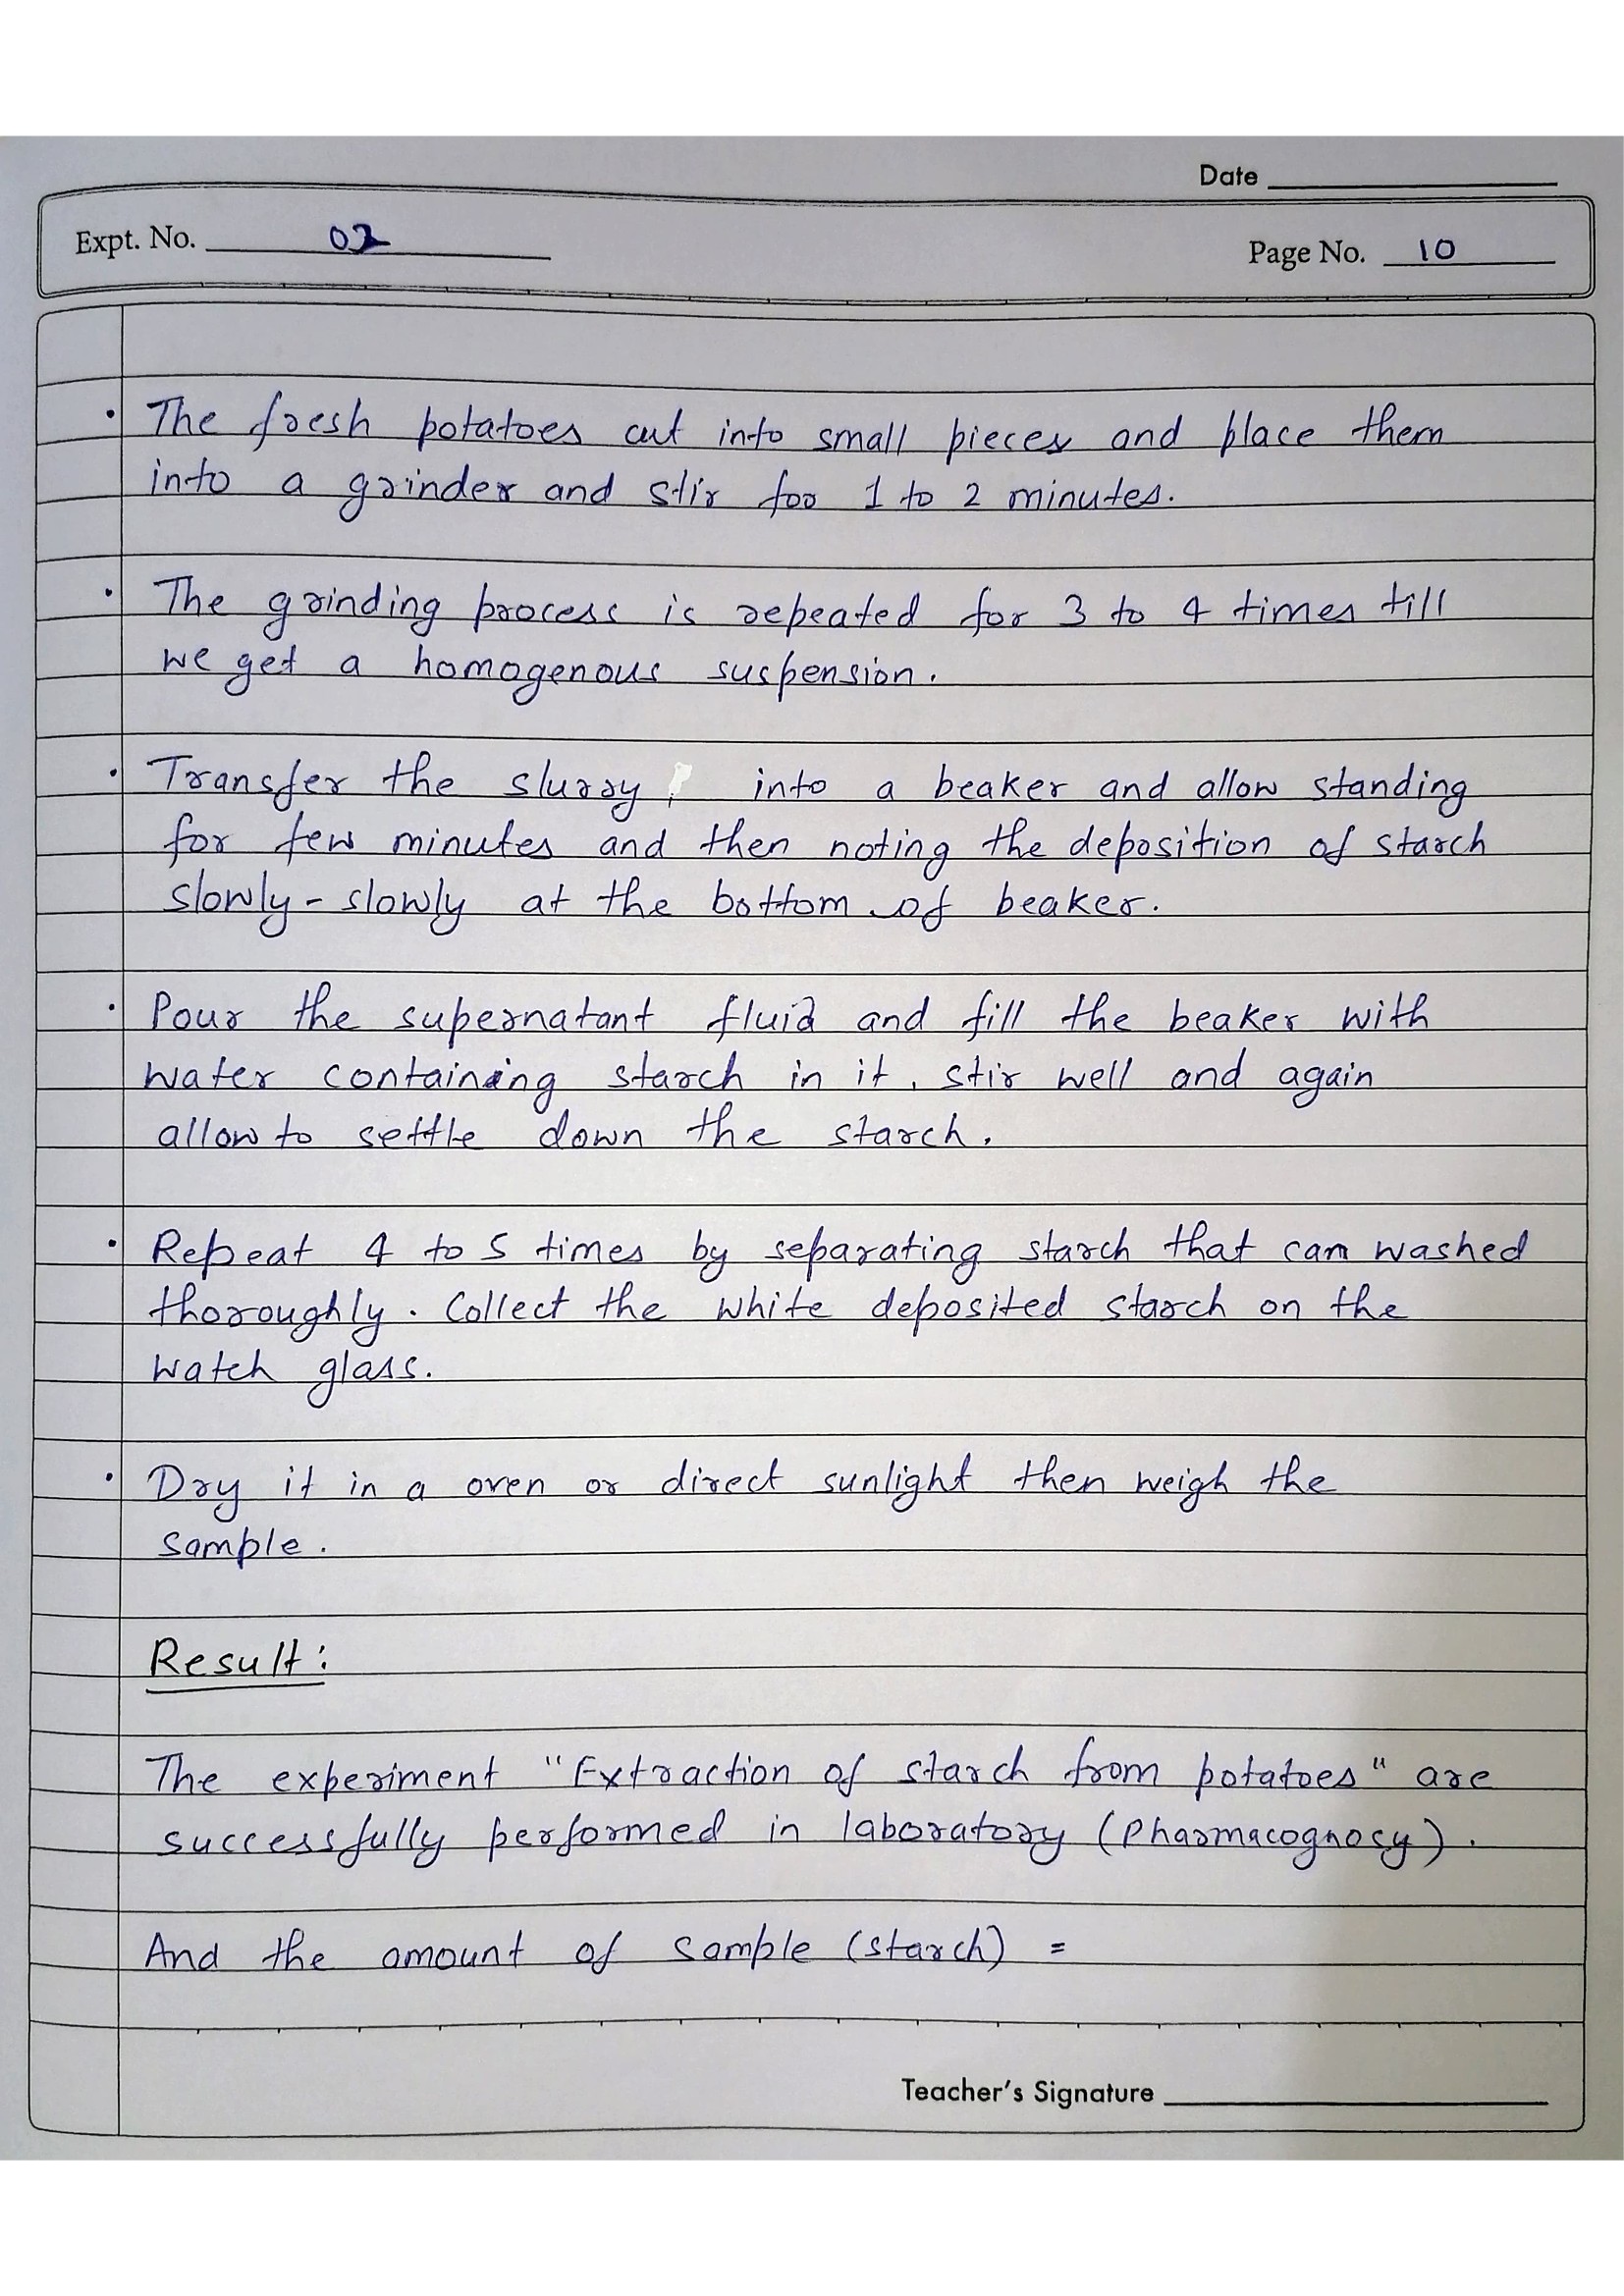 Date
Expt. No. 02
Page No. 10
• The fresh potatoes cut into small pieces and place them
into a grinder and stir for 1 to 2 minutes.
• The grinding process is repeated for 3 to 4 times till
we get a homogenous suspension.
• Transfer the slurry into a beaker and allow standing
for few minutes and then noting the deposition of starch
slowly-slowly at the bottom of beaker.
• Pour the supernatant fluid and fill the beaker with
water containing starch in it, stir well and again
allow to settle down the starch.
• Repeat 4 to 5 times by separating starch that can washed
thoroughly. Collect the white deposited starch on the
watch glass.
• Dry it in a oven or direct sunlight then weigh the
sample.
Result:
The experiment "Extraction of starch from potatoes" are
successfully performed in laboratory (Pharmacognosy).
And the amount of sample (starch) =
Teacher's Signature